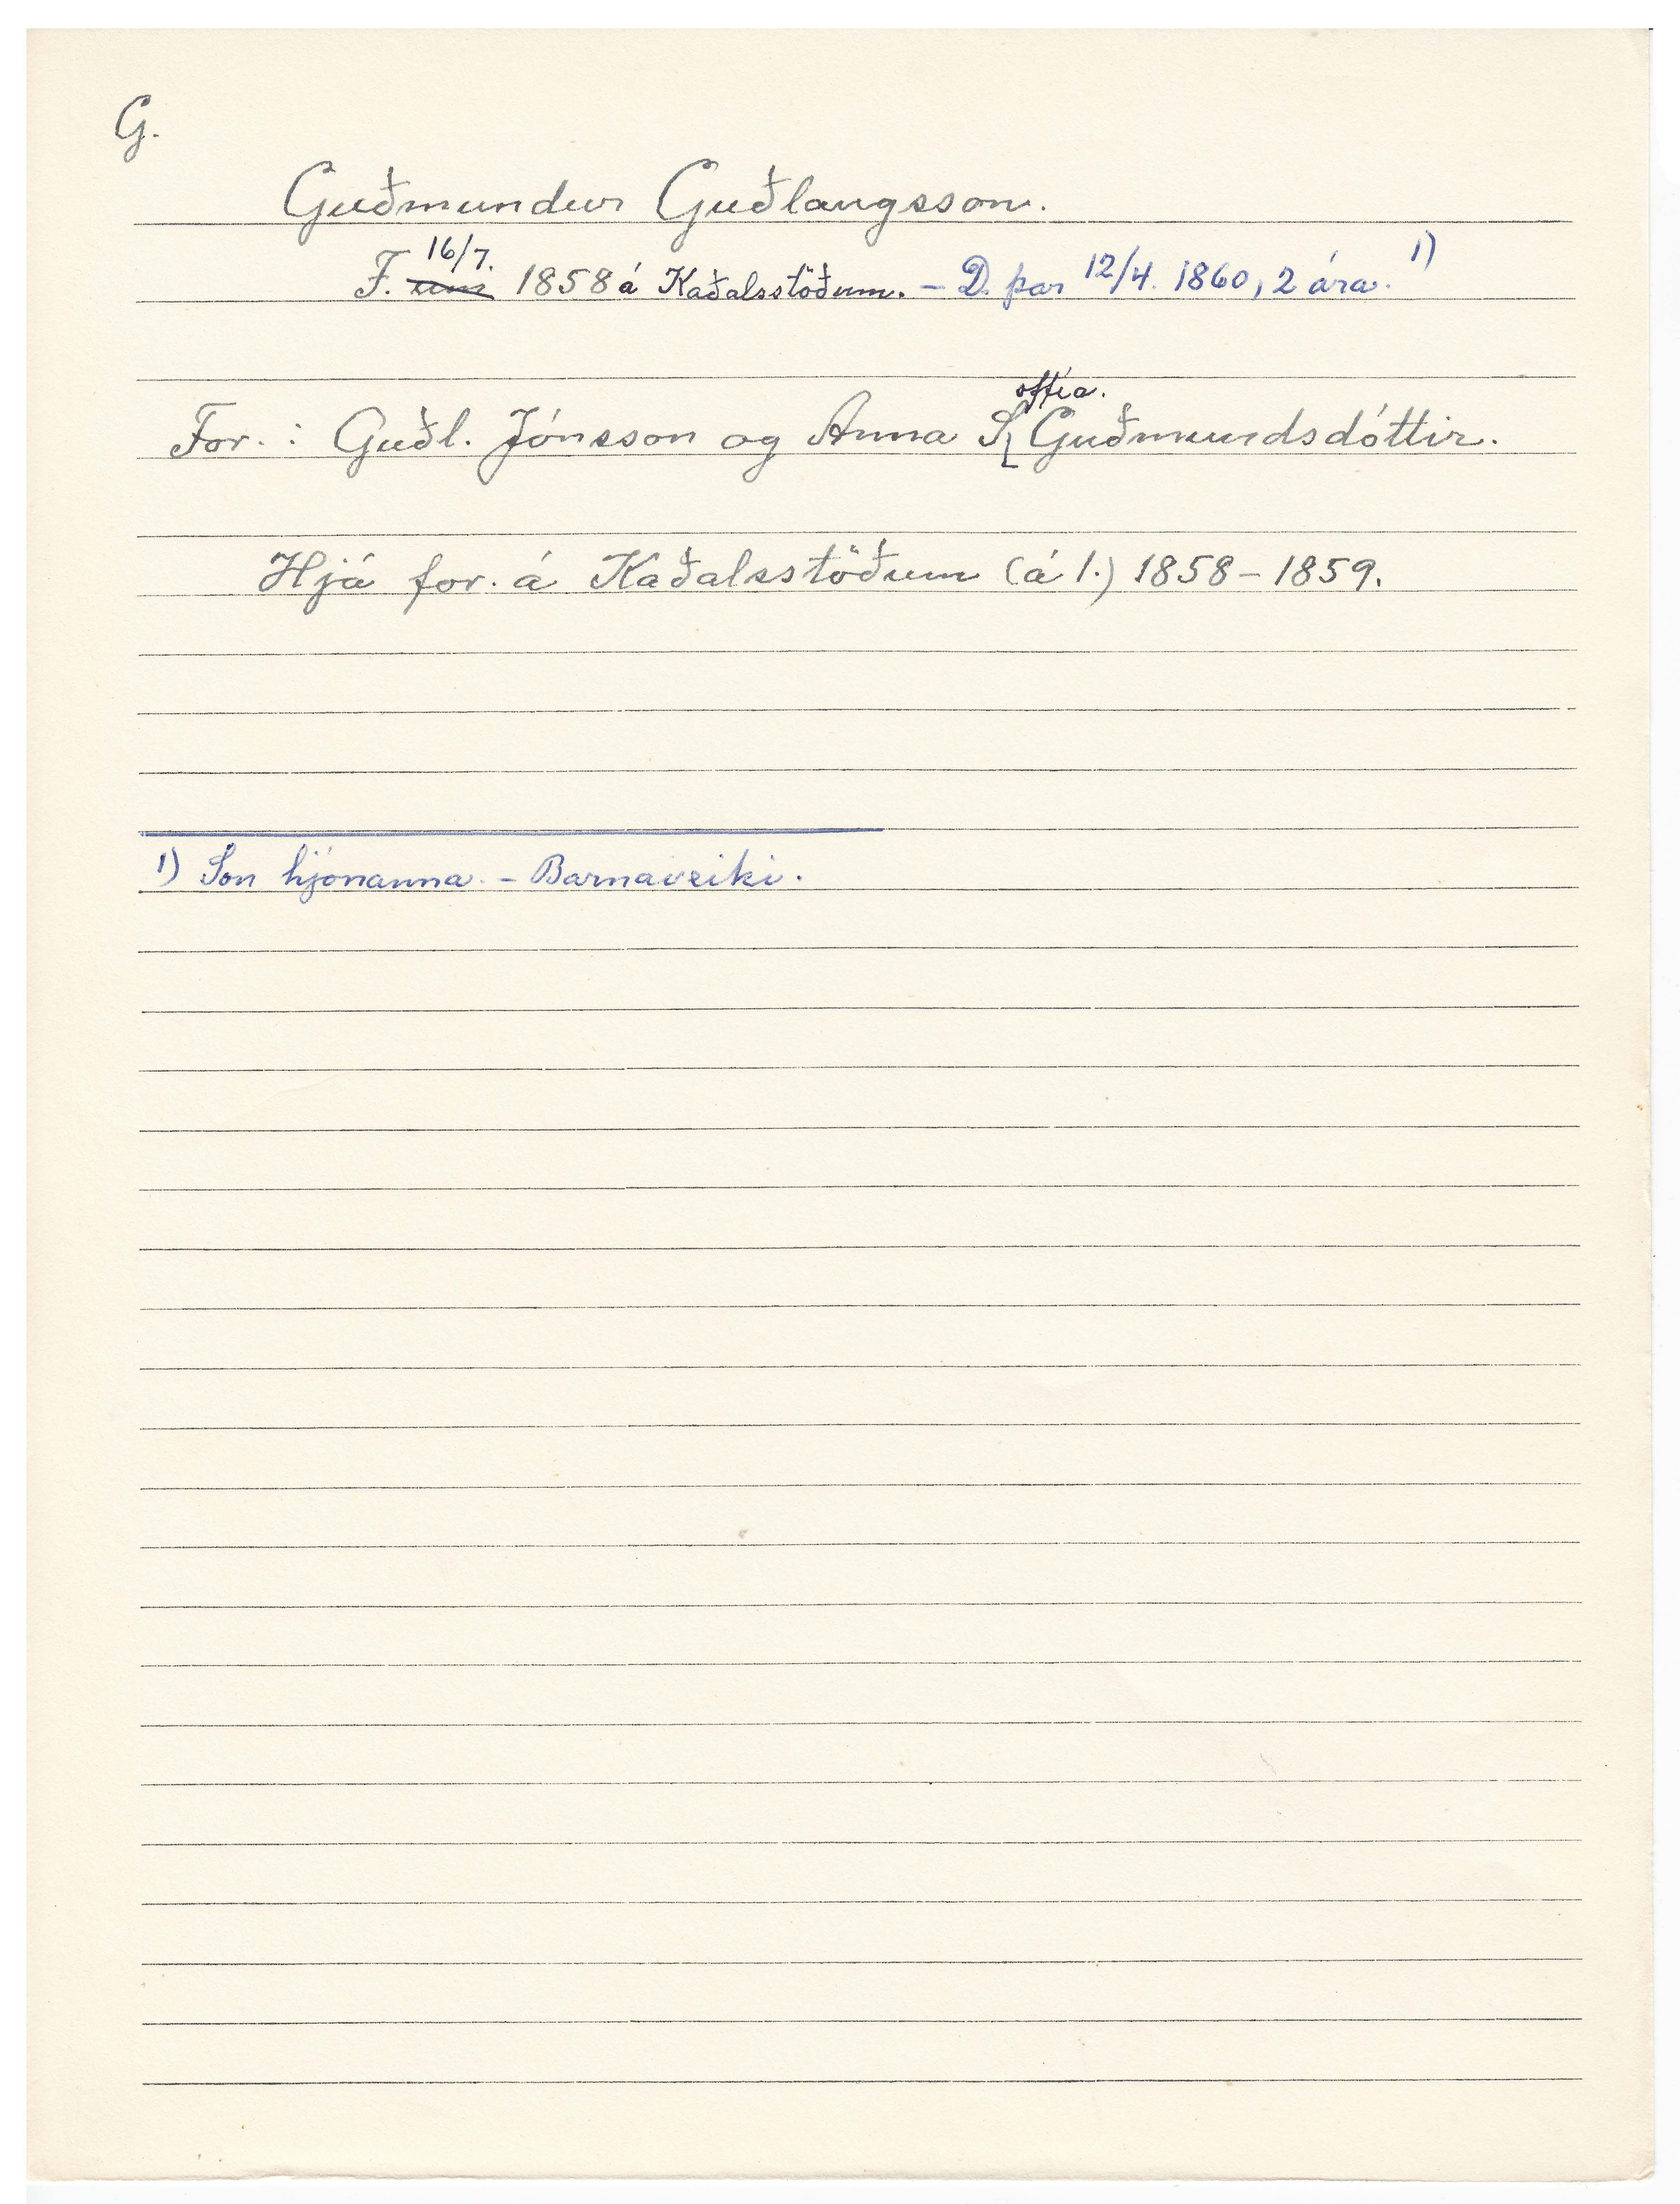 G.
Guðmundur Guðlaugsson.
F. 16/7. 1858 á Kaðalsstöðum. – D. þar 12/4. 1860, 2 ára. 1)
For.: Guðl. Jónsson og Anna Soffía. Guðmundsdóttir.
Hjá for. á Kaðalsstöðum (á l.) 1858–1859.
1) Son hjónanna. – Barnaveiki.